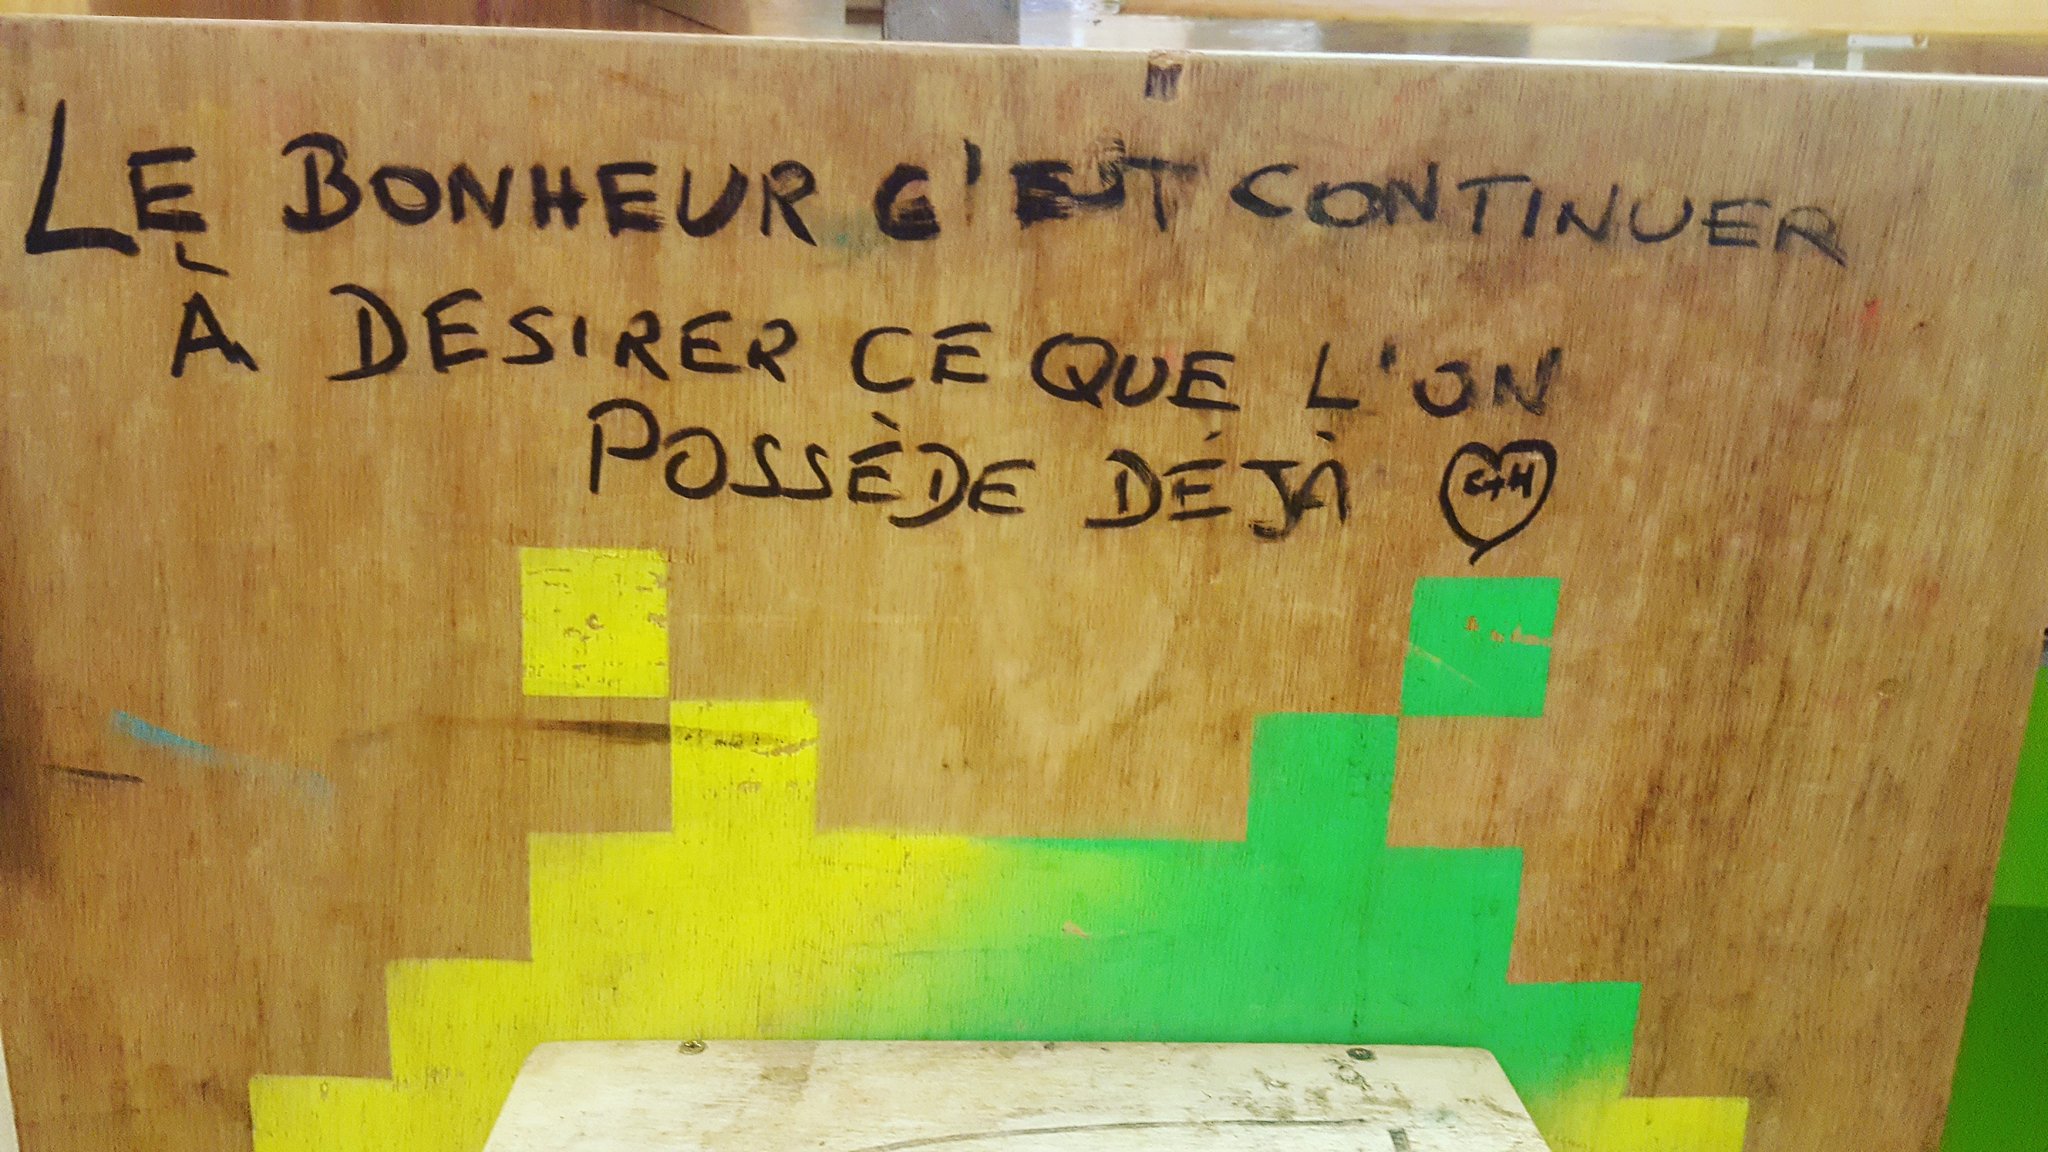 LE BONHEUR C'EST CONTINUER
À DESIRER CE QUE L'ON
POSSÈDE DÉJÀ